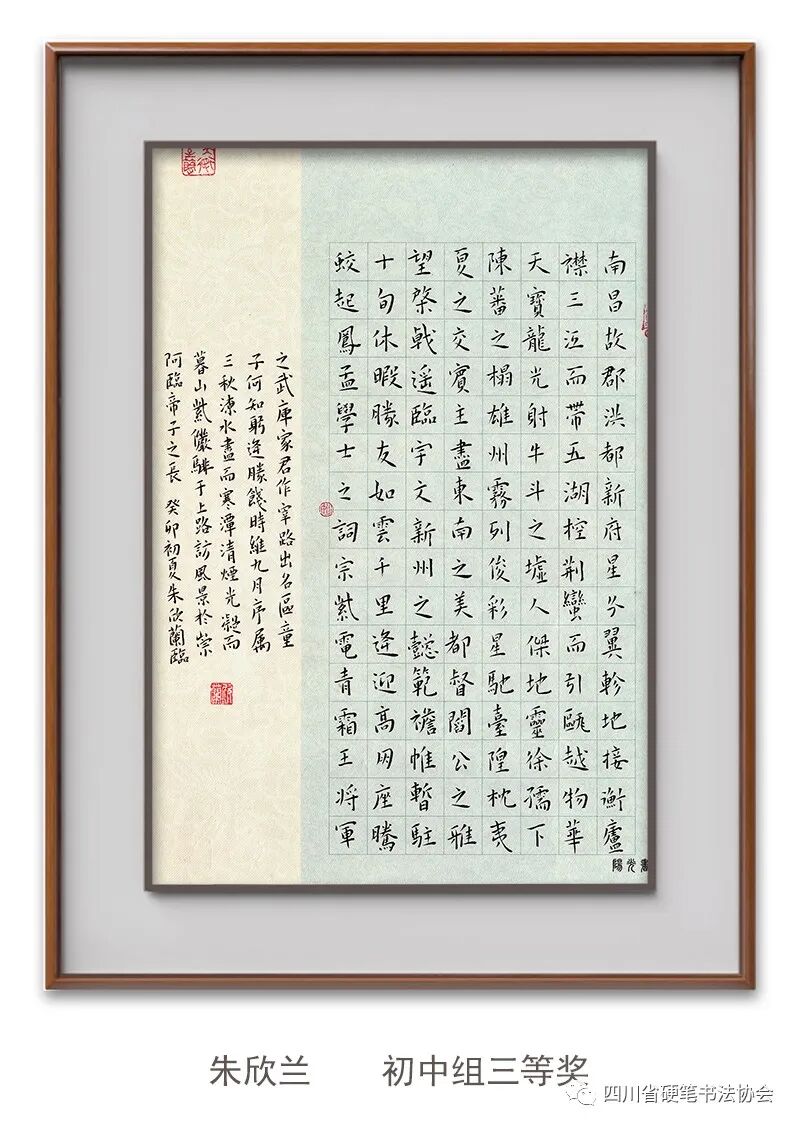 南昌故郡洪都新府星分翼軫地接衡廬
襟三江而帶五湖控荆蠻而引甌越物華
天寶龍光射牛斗之墟人傑地靈徐孺下
陳蕃之榻雄州霧列俊彩星馳臺隍枕夷
夏之交賓主盡東南之美都督閻公之雅
望棨戟遥臨宇文新州之懿範襜帷暫駐
十旬休暇勝友如雲千里逢迎高朋座騰
蛟起鳳孟學士之詞宗紫電青霜王将軍
之武庫家君作宰路出名區童
子何知躬逢勝餞時維九月序属
三秋潦水盡而寒潭清煙光凝而
暮山紫儼驂于上路訪風景於崇
阿臨帝子之長 癸卯初夏朱欣蘭臨
朱欣兰 初中组三等奖
四川省硬笔书法协会